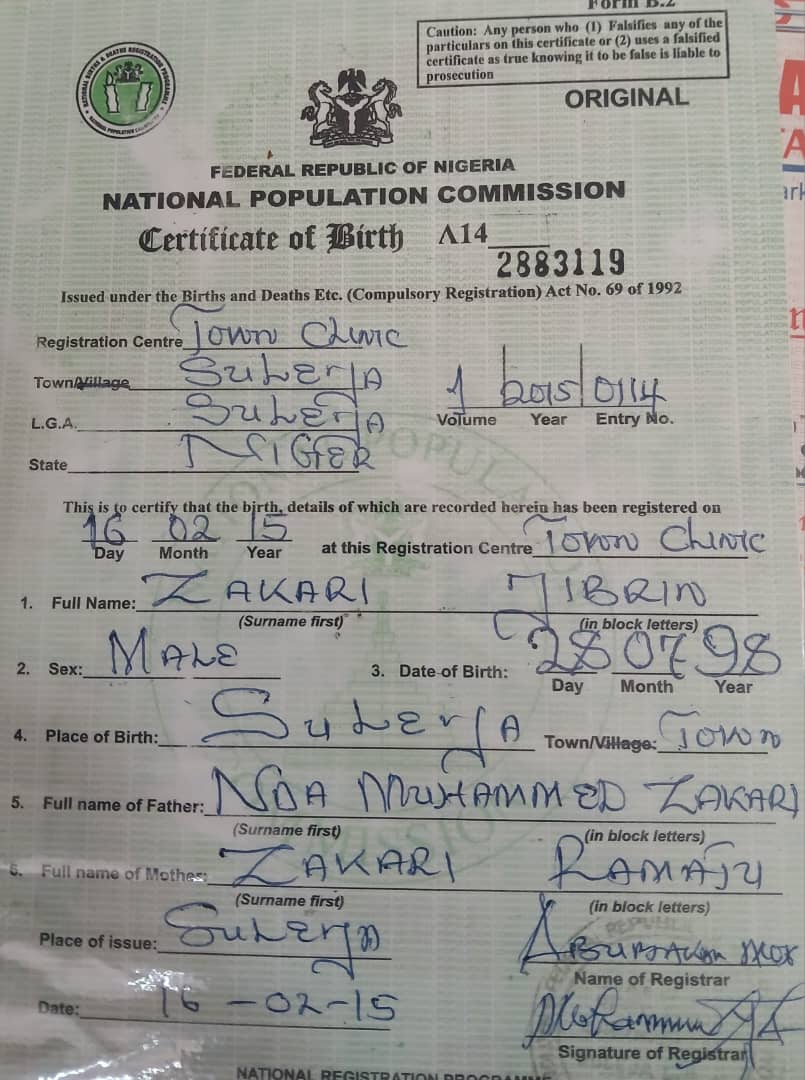 Form B.2
Caution: Any person who (1) Falsifies any of the
particulars on this certificate or (2) uses a falsified
certificate as true knowing it to be false is liable to
prosecution
ORIGINAL
FEDERAL REPUBLIC OF NIGERIA
NATIONAL POPULATION COMMISSION
Certificate of Birth A14
2883119
Issued under the Births and Deaths Etc. (Compulsory Registration) Act No. 69 of 1992
Registration Centre Town Clinic
Town/Village SULEJA
L.G.A. SULEJA
1 2015 0114
Volume Year Entry No.
State NIGER
This is to certify that the birth, details of which are recorded herein has been registered on
16 02 15
Day Month Year at this Registration Centre Town Clinic
1. Full Name: ZAKARI JIBRIN
(Surname first) (in block letters)
2. Sex: MALE 3. Date of Birth: 28 07 98
Day Month Year
4. Place of Birth: SULEJA Town/Village: Town
5. Full name of Father: NDA MUHAMMED ZAKARI
(Surname first) (in block letters)
6. Full name of Mother: ZAKARI RAMATU
(Surname first) (in block letters)
Place of issue: SULEJA
Name of Registrar
Date: 16-02-15
Signature of Registrar
NATIONAL REGISTRATION PROGRAMME